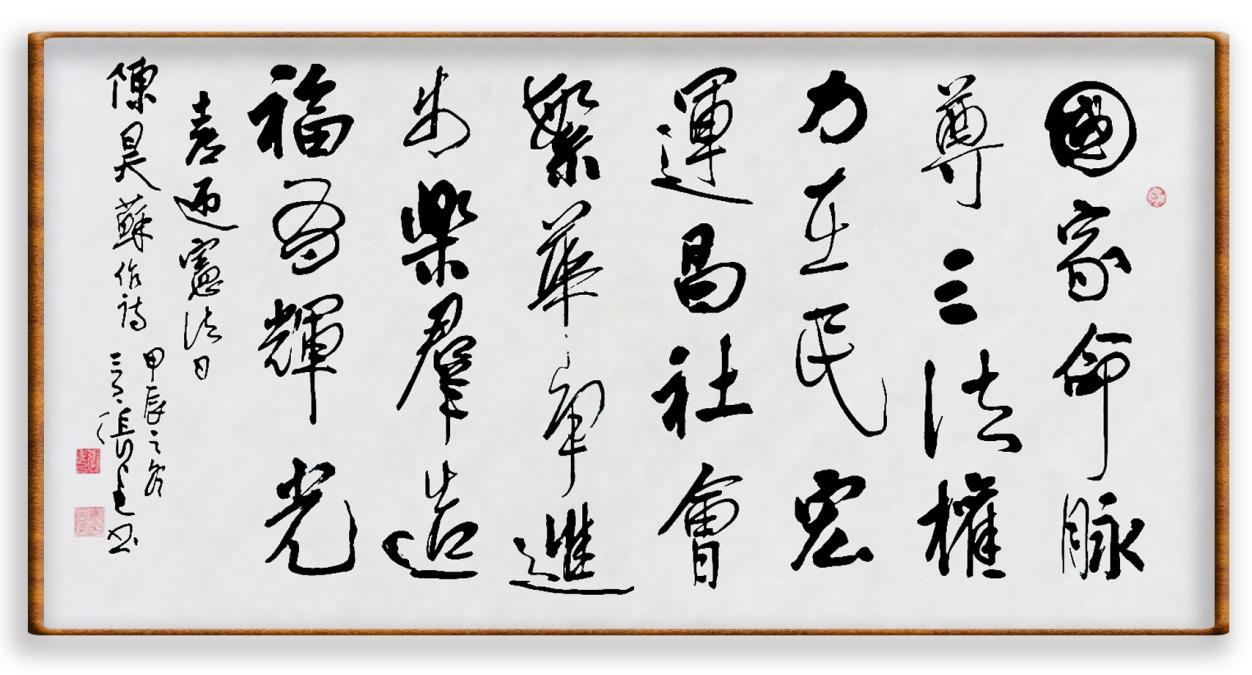 國家命脉
尊三法權
力在民宏
運昌社會
繁華進
步樂群造
福吾輝光
喜迎憲法日
陳昊蘇作詩
甲辰之冬
張書